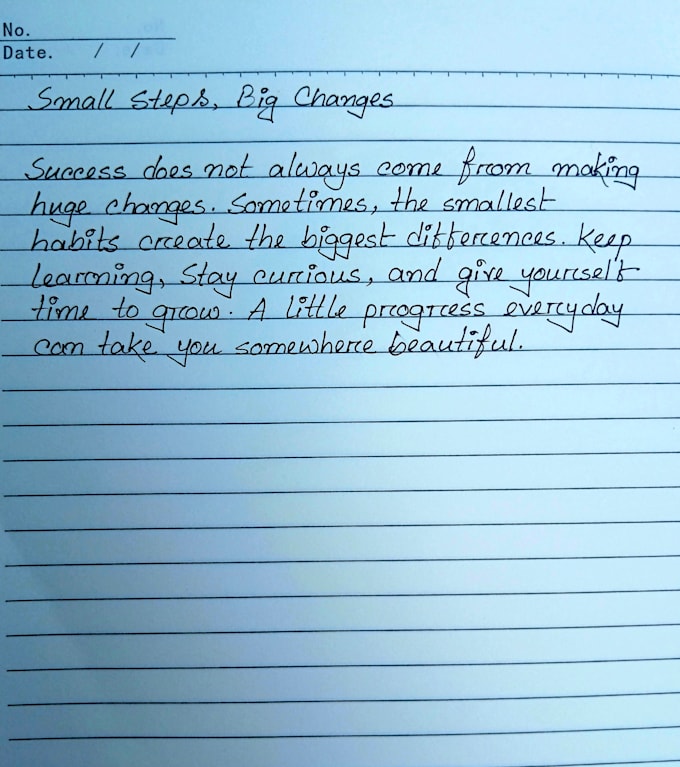 No.
Date. / /
Small Steps, Big Changes
Success does not always come from making
huge changes. Sometimes, the smallest
habits create the biggest differences. Keep
learning, Stay curious, and give yourself
time to grow. A little progress everyday
can take you somewhere beautiful.